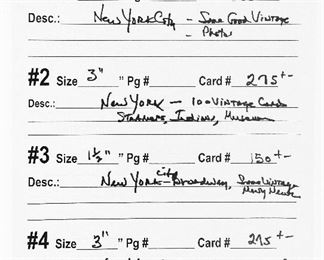 Desc.: New York City - Some Good Vintage
- Photos
#2 Size 3" " Pg # Card # 275 +-
Desc.: New York - 100 Vintage Cards
Steamers, Indians, Museum
#3 Size 1½" " Pg # Card # 150 +-
city
Desc.: New York - Broadway, Some Vintage
#4 Size 3" " Pg # Card # 275 +-